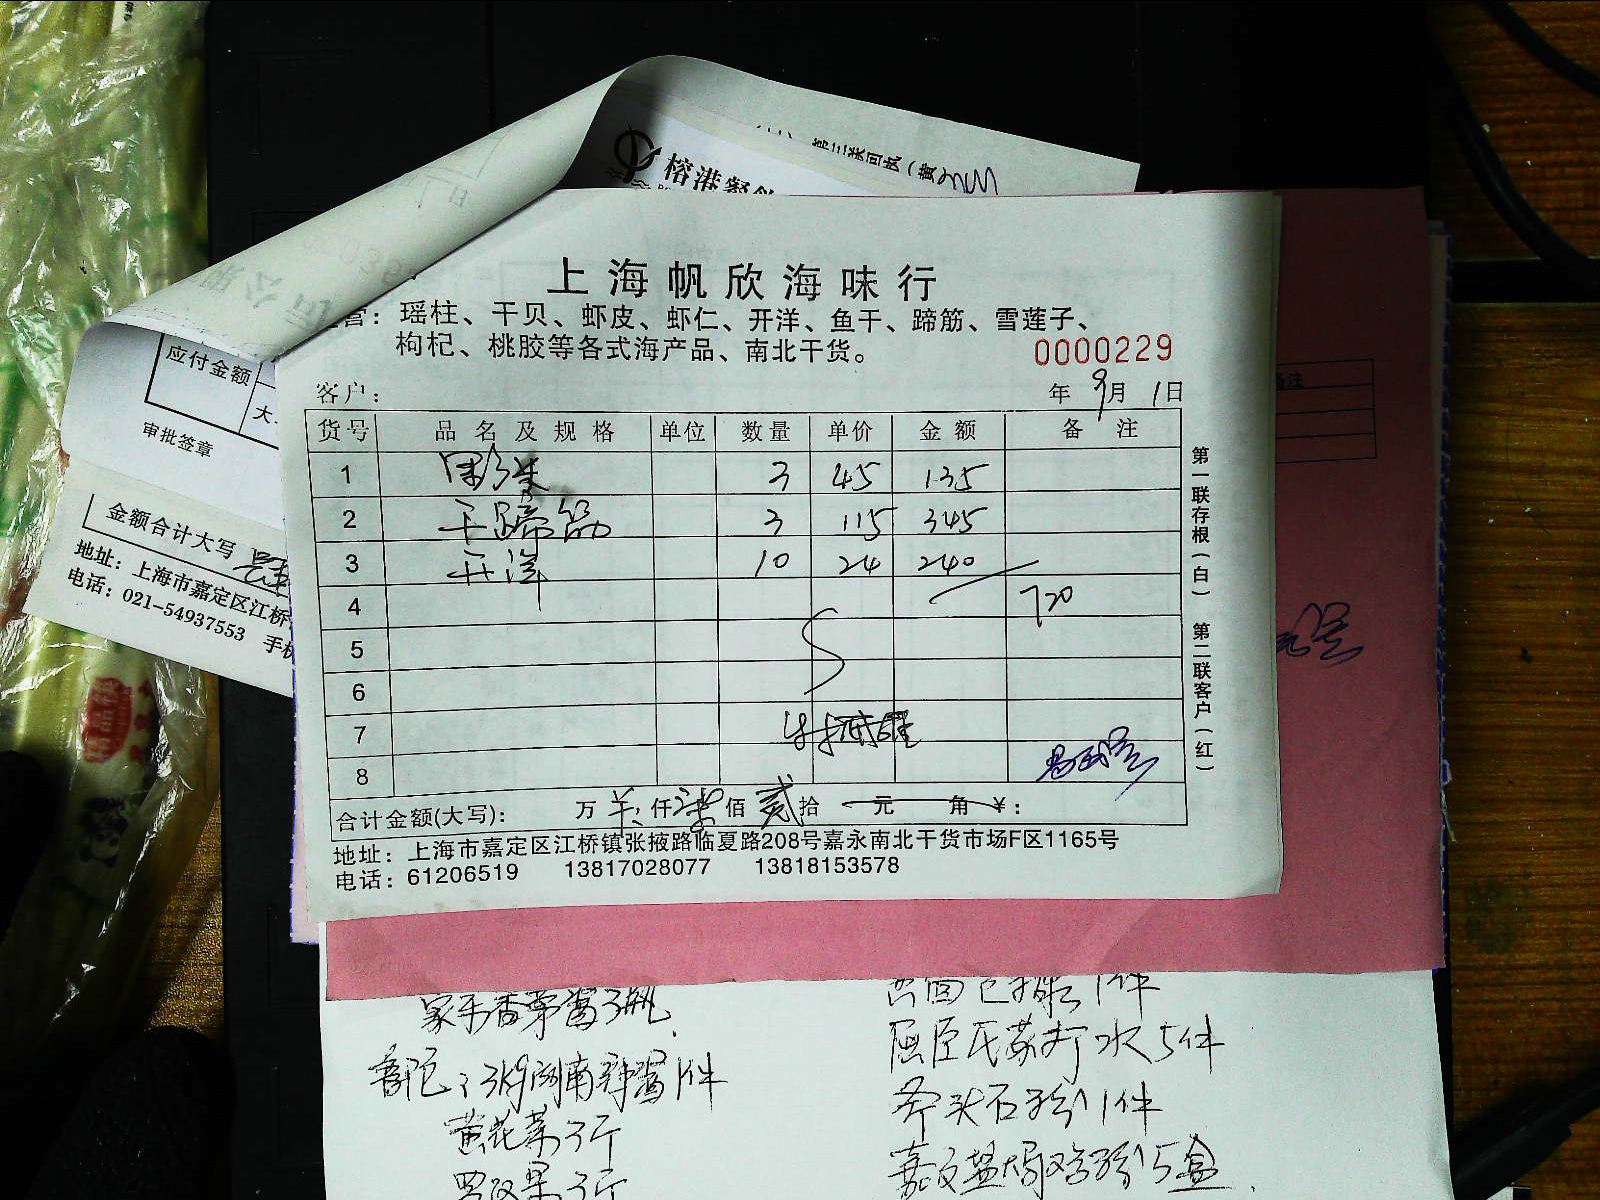 榕港餐饮
上海帆欣海味行
营：瑶柱、干贝、虾皮、虾仁、开洋、鱼干、蹄筋、雪莲子、
枸杞、桃胶等各式海产品、南北干货。
0000229
客户：
年 9月 1日
货号 品名及规格 单位 数量 单价 金额 备注
1 3 45 135
2 干蹄筋 3 115 345
3 开洋 10 24 240
4 720
5
6
7
8
合计金额(大写)： 万 仟 柒 佰 贰 拾 元 角 ¥：
地址：上海市嘉定区江桥镇张掖路临夏路208号嘉永南北干货市场F区1165号
电话：61206519 13817028077 13818153578
第一联存根（白） 第二联客户（红）
应付金额
大
审批签章
金额合计大写
地址：上海市嘉定区江桥
电话：021-54937553 手机
备注
家乐香茅酱3瓶
湖南辣酱1件
黄花菜3斤
罗汉果3斤
1件
屈臣氏苏打水5件
斧头石粉1件
盐焗鸡粉5盒